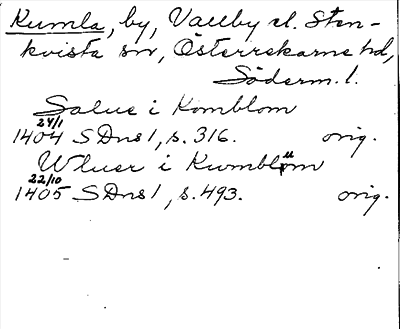 Kumla, by, Vallby el. Sten-
kvista sn, Österrekarne hd,
Söderm. l.
Salue i Komblom
24/1
1404 SDns 1, s. 316. orig.
Wluer i Kumblum
22/10
1405 SDns 1, s. 493. orig.